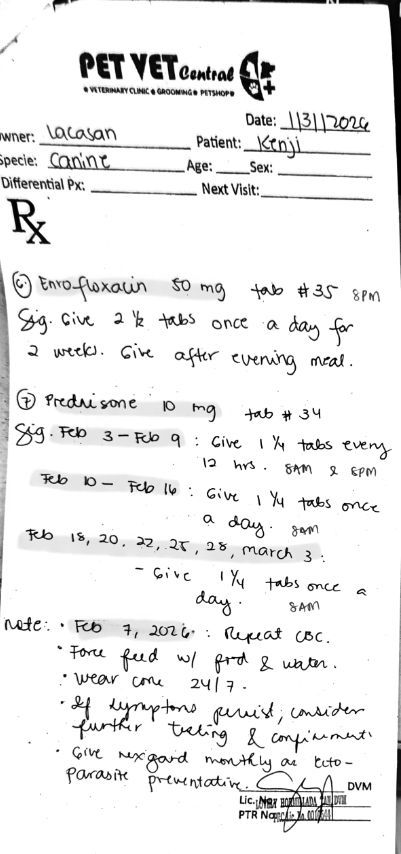 PET VET Central
• VETERINARY CLINIC • GROOMING • PETSHOP •
Date: 1|31|2026
wner: Lacasan Patient: Kenji
Specie: Canine Age: Sex:
Differential Px: Next Visit:
Rx
⑥ Enrofloxacin 50 mg tab #35 8PM
Sig. Give 2 ½ tabs once a day for
2 weeks. Give after evening meal.
⑦ Prednisone 10 mg tab # 34
Sig. Feb 3 – Feb 9 : Give 1 ¼ tabs every
12 hrs. 8AM & 8PM
Feb 10 – Feb 16 : Give 1 ¼ tabs once
a day. 8AM
Feb 18, 20, 22, 25, 28, march 3 :
- Give 1 ¼ tabs once a
day. 8AM
Note: • Feb 7, 2026 : Repeat CBC.
• Force feed w/ food & water.
• wear cone 24/7.
• If symptoms persist, consider
further testing & confinement.
• Give nexgard monthly as ecto-
parasite preventative.
DVM
Lic.
PTR No.